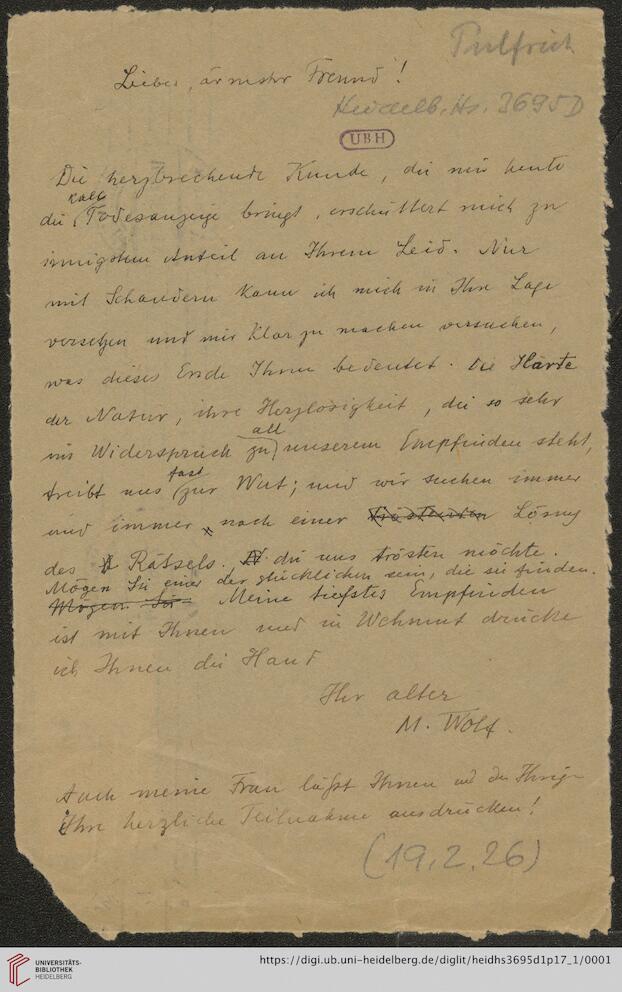 Pulfrich
Lieber, ärmster Freund!
Heidelb. Hs. 3695 D
UBH
Die herzbrechende Kunde, die mir heute
kalte
die Todesanzeige bringt, erschüttert mich zu
innigstem Anteil an Ihrem Leid. Nur
mit Schaudern kann ich mich in Ihre Lage
versetzen und mir klar zu machen versuchen,
was dieses Ende Ihnen bedeutet. Die Härte
der Natur, ihre Herzlosigkeit, die so sehr
all
im Widerspruch zu unserem Empfinden steht,
fast
treibt uns zur Wut; und wir suchen immer
und immer nach einer tröstenden Lösung
des Rätsels, die uns trösten möchte.
Mögen Sie einer der glücklichen sein, die sie finden.
Mögen Sie Meine tiefstes Empfinden
ist mit Ihnen und in Wehmut drücke
ich Ihnen die Hand
Ihr alter
M. Wolf.
Auch meine Frau läßt Ihnen und den Ihrigen
Ihre herzliche Teilnahme ausdrücken!
(19.2.26)
UNIVERSITÄTS-
BIBLIOTHEK
HEIDELBERG
https://digi.ub.uni-heidelberg.de/diglit/heidhs3695d1p17_1/0001